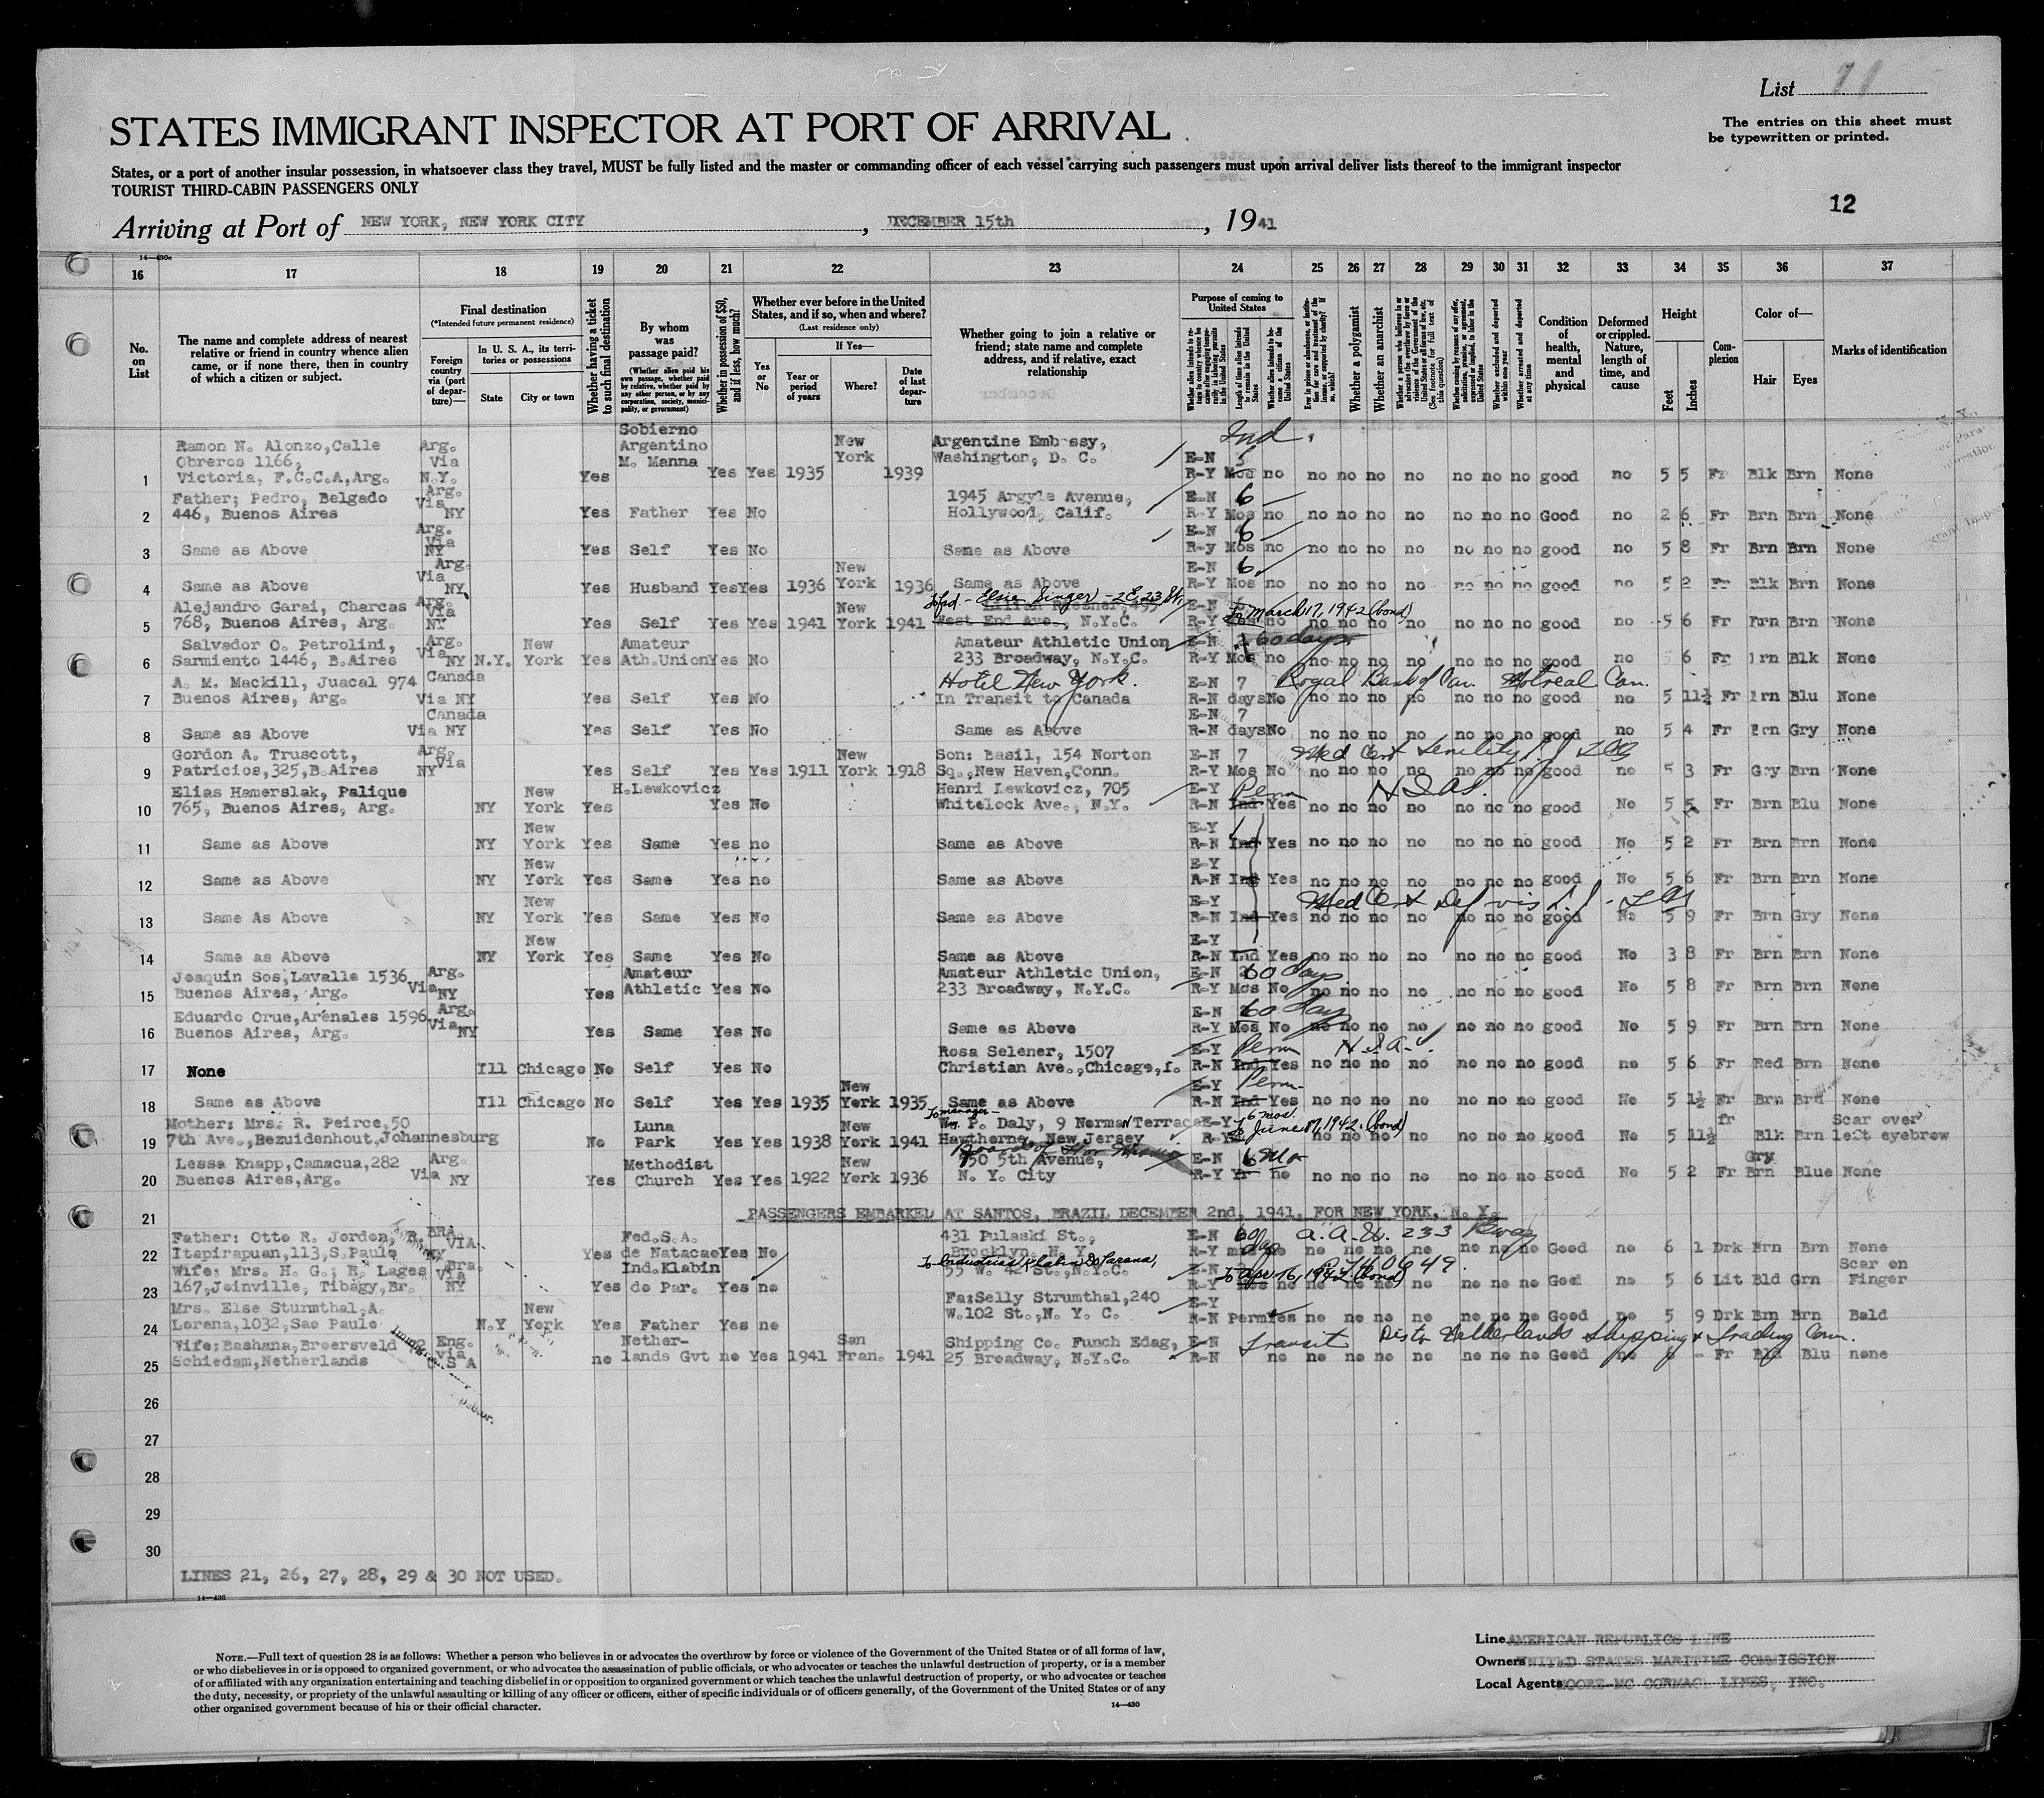 List 11
STATES IMMIGRANT INSPECTOR AT PORT OF ARRIVAL
The entries on this sheet must
be typewritten or printed.
States, or a port of another insular possession, in whatsoever class they travel, MUST be fully listed and the master or commanding officer of each vessel carrying such passengers must upon arrival deliver lists thereof to the immigrant inspector
TOURIST THIRD-CABIN PASSENGERS ONLY
12
Arriving at Port of NEW YORK, NEW YORK CITY, DECEMBER 15th, 1941
14—430c
16 17 18 19 20 21 22 23 24 25 26 27 28 29 30 31 32 33 34 35 36 37
No. on List
The name and complete address of nearest relative or friend in country whence alien came, or if none there, then in country of which a citizen or subject.
Final destination
(*Intended future permanent residence)
Foreign country via (port of departure)—
In U. S. A., its territories or possessions
State
City or town
Whether having a ticket to such final destination
By whom was passage paid?
(Whether alien paid his own passage, whether paid by relative, whether paid by any other person, or by any corporation, society, municipality, or government)
Whether in possession of $50, and if less, how much?
Whether ever before in the United States, and if so, when and where?
(Last residence only)
Yes or No
If Yes—
Year or period of years
Where?
Date of last departure
Whether going to join a relative or friend; state name and complete address, and if relative, exact relationship
Purpose of coming to United States
Length of time alien intends to remain in the United States
Whether alien intends to become a citizen of the United States
Whether a polygamist
Whether an anarchist
(See footnote for full text of this question)
Whether excluded and deported within one year
Whether arrested and deported at any time
Condition of health, mental and physical
Deformed or crippled. Nature, length of time, and cause
Height
Feet
Inches
Complexion
Color of—
Hair
Eyes
Marks of identification
Ramon N. Alonzo, Calle Arg. Sobierno Argentino New Argentine Embassy, Ind.
Obreros 1166, Via M. Manna York Washington, D. C. E-N
1 Victoria, F.C.C.A, Arg. N.Y. Yes Yes Yes 1935 1939 R-Y Mos no no no no no no no no good no 5 5 Fr Blk Brn None
Father; Pedro, Belgado Arg. Via 1945 Argyle Avenue, E-N 6
2 446, Buenos Aires NY Yes Father Yes No Hollywood, Calif. R-Y Mos no no no no no no no no Good no 2 6 Fr Brn Brn None
Arg. Via E-N 6
3 Same as Above NY Yes Self Yes No Same as Above R-y Mos no no no no no no no no good no 5 8 Fr Brn Brn None
Arg. Via New E-N 6
4 Same as Above NY Yes Husband Yes Yes 1936 York 1936 Same as Above R-Y Mos no no no no no no no no good no 5 2 Fr Blk Brn None
Alejandro Garai, Charcas Arg. Via New To frd - Elsie Singer - 2 E. 23 St. E-N To March 17, 1942 (bond)
5 768, Buenos Aires, Arg. NY Yes Self Yes Yes 1941 York 1941 West End Ave., N.Y.C. R-Y no no no no no no no no good no 5 6 Fr Brn Brn None
Salvador O. Petrolini, Arg. Via New Amateur Amateur Athletic Union E-N 60 days
6 Sarmiento 1446, B.Aires NY N.Y. York Yes Ath.Union Yes No 233 Broadway, N.Y.C. R-Y Mos no no no no no no no no good no 6 Fr Brn Blk None
A. M. Mackill, Juacal 974 Canada Hotel New York. E-N 7 Royal Bank of Can. Motreal Can.
7 Buenos Aires, Arg. Via NY Yes Self Yes No In Transit to Canada R-N days No no no no no no no no good no 5 11½ Fr Brn Blu None
Canada E-N 7
8 Same as Above Via NY Yes Self Yes No Same as Above R-N days No no no no no no no no good no 5 4 Fr Brn Gry None
Gordon A. Truscott, Arg. Via New Son: Basil, 154 Norton E-N 7 Med Cert Senility
9 Patricios, 325, B.Aires NY Yes Self Yes Yes 1911 York 1918 Sq., New Haven, Conn. R-Y Mos No no no no no no no no good no 5 3 Fr Gry Brn None
Elias Hamerslak, Palique New H.Lewkovicz Henri Lewkovicz, 705 E-Y Perm H I A S.
10 765, Buenos Aires, Arg. NY York Yes Yes No Whitelock Ave., N.Y. R-N Ind Yes no no no no no no no good No 5 5 Fr Brn Blu None
New E-Y
11 Same as Above NY York Yes Same Yes no Same as Above R-N Ind Yes no no no no no no no good No 5 2 Fr Brn Brn None
New E-Y
12 Same as Above NY York Yes Same Yes no Same as Above R-N Ind Yes no no no no no no no good No 5 6 Fr Brn Brn None
New E-Y Med Cert Def vis
13 Same As Above NY York Yes Same Yes No Same as Above R-N Ind Yes no no no no no no no good No 5 9 Fr Brn Gry None
New E-Y
14 Same as Above NY York Yes Same Yes No Same as Above R-N Ind Yes no no no no no no no good No 3 8 Fr Brn Brn None
Joaquin Sos, Lavalle 1536, Arg. Amateur Amateur Athletic Union, E-N 60 days
15 Buenos Aires, Arg. Via NY Yes Athletic Yes No 233 Broadway, N.Y.C. R-Y Mos No no no no no no no no good No 5 8 Fr Brn Brn None
Eduardo Orue, Arenales 1596 Arg. Via E-N 60 days
16 Buenos Aires, Arg. NY Yes Same Yes No Same as Above R-Y Mos No no no no no no no no good No 5 9 Fr Brn Brn None
Rosa Selener, 1507 E-Y Perm
17 None Ill Chicago No Self Yes No Christian Ave., Chicago, I. R-N Ind Yes no no no no no no no good no 5 6 Fr Red Brn None
New E-Y Perm
18 Same as Above Ill Chicago No Self Yes Yes 1935 York 1935 Same as Above R-N Ind Yes no no no no no no no good No 5 1½ Fr Brn Brn None
Mother: Mrs. R. Peirce, 50 Luna New To manager - Wm. P. Daly, 9 Norman Terrace E-Y 6 mos. To June 17, 1942 (bond) fr Scar over
19 7th Ave., Bezuidenhout, Johannesburg No Park Yes Yes 1938 York 1941 Hawthorne, New Jersey R-Y no no no no no no no good No 5 11½ Blk Brn left eyebrow
Lessa Knapp, Camacua, 282 Arg. Methodist New 150 5th Avenue, E-N 6 Mo Gry
20 Buenos Aires, Arg. Via NY Yes Church Yes Yes 1922 York 1936 N. Y. City R-Y Yr no no no no no no no no good No 5 2 Fr Brn Blue None
21 PASSENGERS EMBARKED AT SANTOS, BRAZIL DECEMBER 2nd, 1941, FOR NEW YORK, N. Y.
Father: Otto R. Jordon, R. BRA. VIA Fed.S.A. 431 Pulaski St., E-N 60 days A.A.U. 233 Bway
22 Itapirapuan, 113, S.Paulo NY Yes de Natacao Yes No Brooklyn, N. Y. R-Y no no no no no no no Good no 6 1 Drk Brn Brn None
Wife: Mrs. H. G.; R. Lages Bra. Via Ind.Klabin To Industrias Klabin Do Parana, 55 W. 42 St., N.Y.C. E-N To Apr 16, 1942 (bond) Scar on
23 167, Joinville, Tibagy, Br. NY Yes de Par. Yes no no no no no no no no Good no 5 6 Lit Bld Grn Finger
Mrs. Else Sturmthal, A. New Fa: Selly Strumthal, 240 E-Y
24 Lorena, 1032, Sao Paulo N.Y York Yes Father Yes no W.102 St., N. Y. C. R-N Perm Yes no no no no no no no Good no 5 9 Drk Brn Brn Bald
Wife: Bashana, Broersveld Eng. via Nether- San Shipping Co. Funch Edag, E-N Transit Dist. Netherlands Shipping & Trading Com.
25 Schiedam, Netherlands U S A no lands Gvt no Yes 1941 Fran. 1941 25 Broadway, N.Y.C. R-N no no no no no no no no Good no 6 - Fr Bld Blu none
26
27
28
29
30
LINES 21, 26, 27, 28, 29 & 30 NOT USED.
14—430
NOTE.—Full text of question 28 is as follows: Whether a person who believes in or advocates the overthrow by force or violence of the Government of the United States or of all forms of law,
or who disbelieves in or is opposed to organized government, or who advocates the assassination of public officials, or who advocates or teaches the unlawful destruction of property, or is a member
of or affiliated with any organization entertaining and teaching disbelief in or opposition to organized government or which teaches the unlawful destruction of property, or who advocates or teaches
the duty, necessity, or propriety of the unlawful assaulting or killing of any officer or officers, either of specific individuals or of officers generally, of the Government of the United States or of any
other organized government because of his or their official character.
14—430
Line AMERICAN REPUBLICS LINE
Owners UNITED STATES MARITIME COMMISSION
Local Agents MOORE-MC CORMACK LINES, INC.